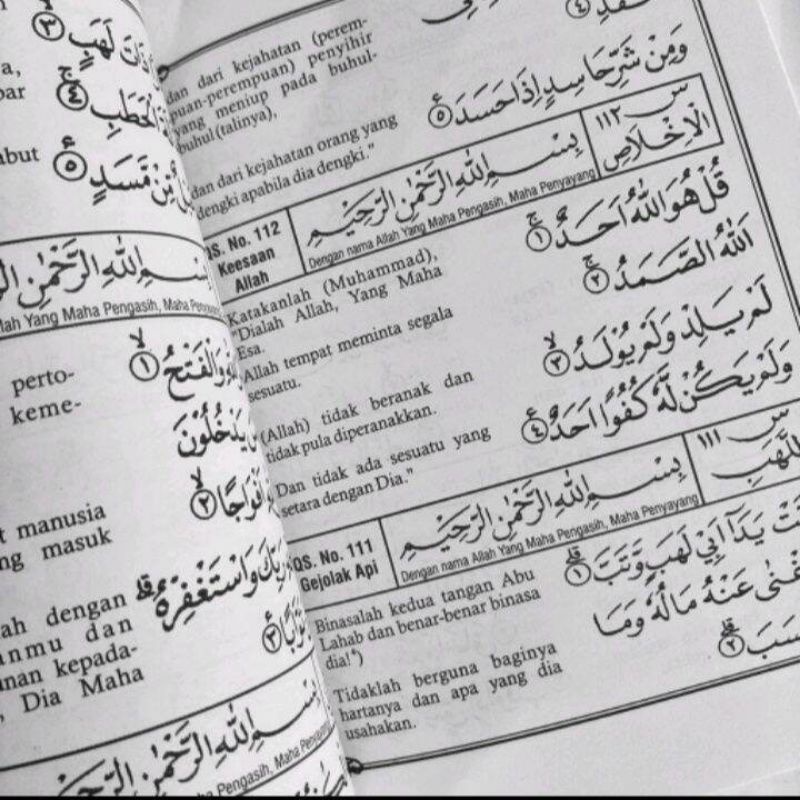 ذَاتَ لَهَبٍ ۝٣
الْحَطَبِ ۝٤
مِّنْ مَّسَدٍ ۝٥
a,
bar
but
بِسْمِ اللهِ الرَّحْمٰنِ
lah Yang Maha Pengasih, Maha
وَالْفَتْحُ ۝١
perto-
keme-
يَدْخُلُونَ
اَفْوَاجًا ۝٢
t manusia
ng masuk
رَبِّكَ وَاسْتَغْفِرْهُ
تَوَّابًا ۝٣
ah dengan
anmu dan
unan kepada-
, Dia Maha
بِسْمِ اللهِ الرَّحْمٰنِ الرَّحِيْمِ
Maha Pengasih, Maha
۝٤
dan dari kejahatan (perem-
puan-perempuan) penyihir
yang meniup pada buhul-
buhul (talinya),
وَمِنْ شَرِّ حَاسِدٍ اِذَا حَسَدَ ۝٥
dan dari kejahatan orang yang
dengki apabila dia dengki."
QS. No. 112
Keesaan
Allah
بِسْمِ اللهِ الرَّحْمٰنِ الرَّحِيْمِ
Dengan nama Allah Yang Maha Pengasih, Maha Penyayang
س ١١٢
الْاِخْلَاصِ
قُلْ هُوَ اللهُ اَحَدٌ ۝١
Katakanlah (Muhammad),
"Dialah Allah, Yang Maha
Esa.
اَللهُ الصَّمَدُ ۝٢
Allah tempat meminta segala
sesuatu.
لَمْ يَلِدْ وَلَمْ يُوْلَدْ ۝٣
(Allah) tidak beranak dan
tidak pula diperanakkan.
وَلَمْ يَكُنْ لَّهٗ كُفُوًا اَحَدٌ ۝٤
Dan tidak ada sesuatu yang
setara dengan Dia."
QS. No. 111
Gejolak Api
بِسْمِ اللهِ الرَّحْمٰنِ الرَّحِيْمِ
Dengan nama Allah Yang Maha Pengasih, Maha Penyayang
س ١١١
اللَّهَبِ
تَبَّتْ يَدَآ اَبِيْ لَهَبٍ وَّتَبَّ ۝١
Binasalah kedua tangan Abu
Lahab dan benar-benar binasa
dia!*)
اَغْنٰى عَنْهُ مَالُهٗ وَمَا
كَسَبَ ۝٢
Tidaklah berguna baginya
hartanya dan apa yang dia
usahakan.